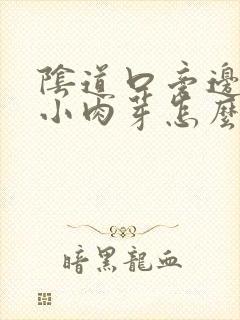 陰道口旁邊
小肉芽怎麼
暗黑龍血